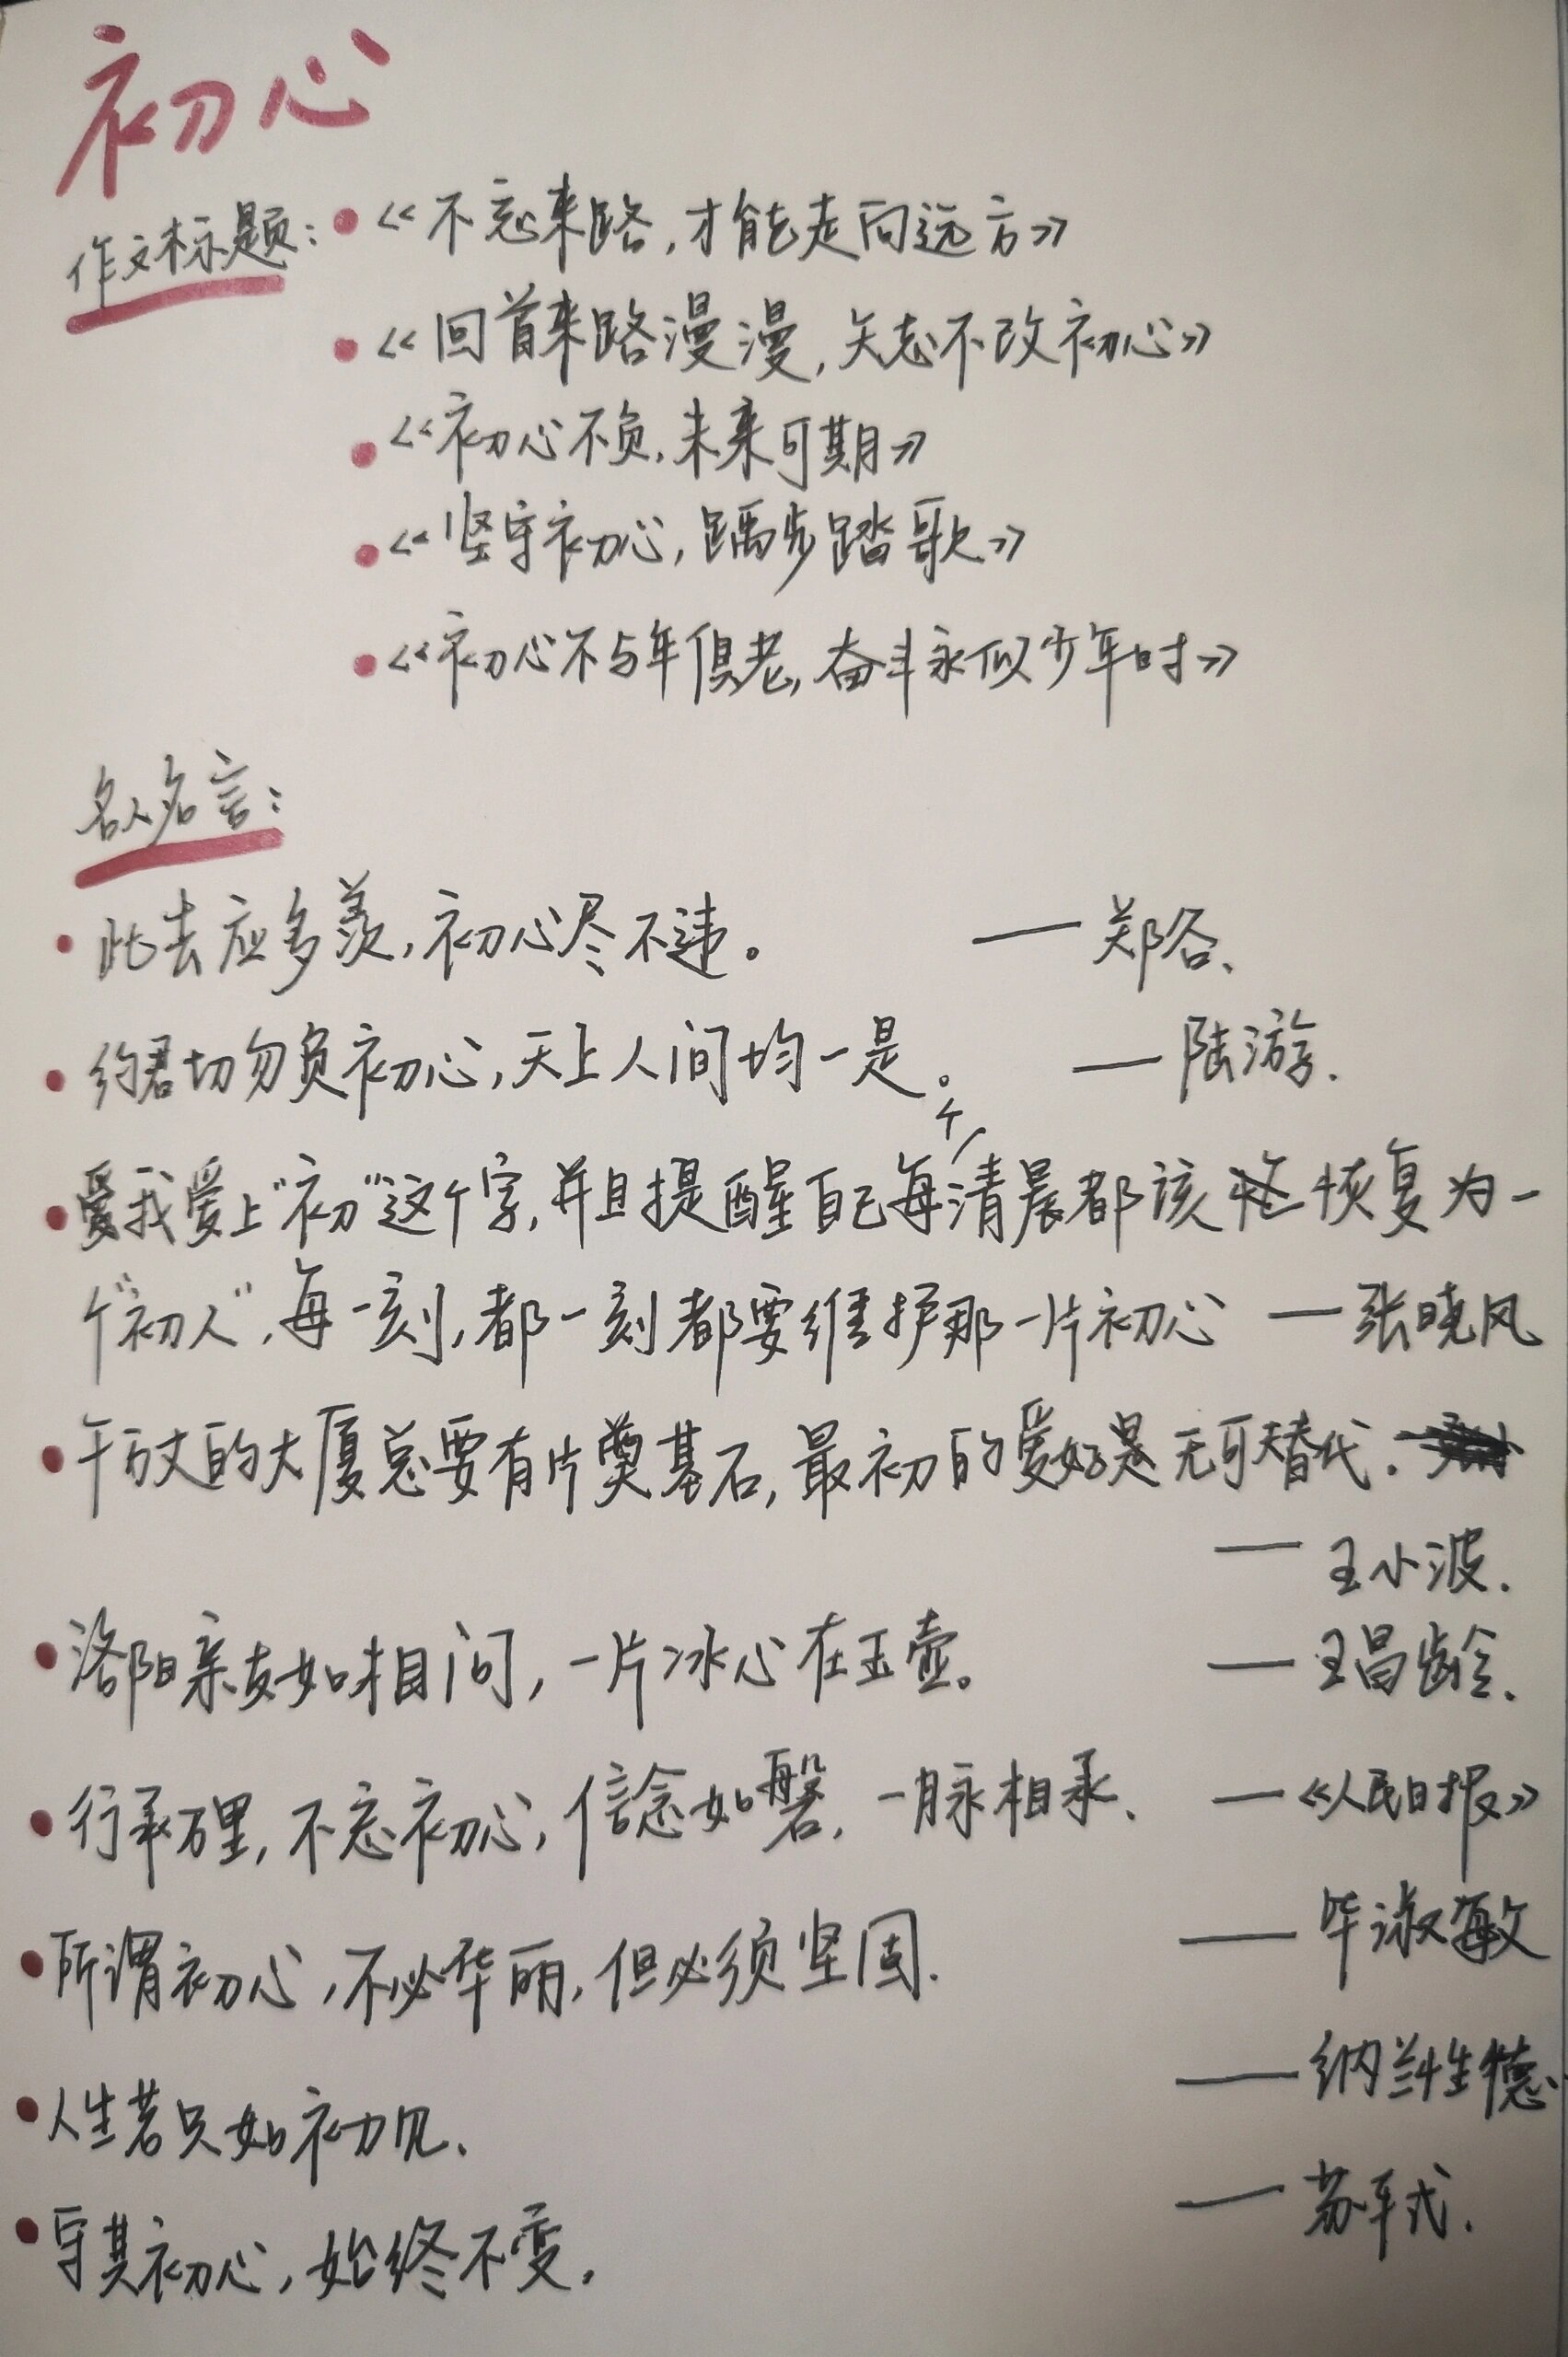 初心
作文标题：•《不忘来路，才能走向远方》
•《回首来路漫漫，矢志不改初心》
•《初心不负，未来可期》
•《坚守初心，踽步踏歌》
•《初心不与年俱老，奋斗永似少年时》
名人名言：
•此去应多羡，初心尽不违。 —郑谷、
•约君切勿负初心，天上人间均一是。 —陆游.
•爱我爱上“初”这个字，并且提醒自己每个清晨都该恢复为一
个“初人”，每一刻，都一刻都要维护那一片初心 —张晓风
•千万丈的大厦总要有片奠基石，最初的爱好是无可替代.
—王小波.
•洛阳亲友如相问，一片冰心在玉壶。 —王昌龄.
•行程万里，不忘初心，信念如磐，一脉相承、 —《人民日报》
•所谓初心，不必华丽，但必须坚固. —毕淑敏
•人生若只如初见、 —纳兰性德.
•守其初心，始终不变. —苏轼.